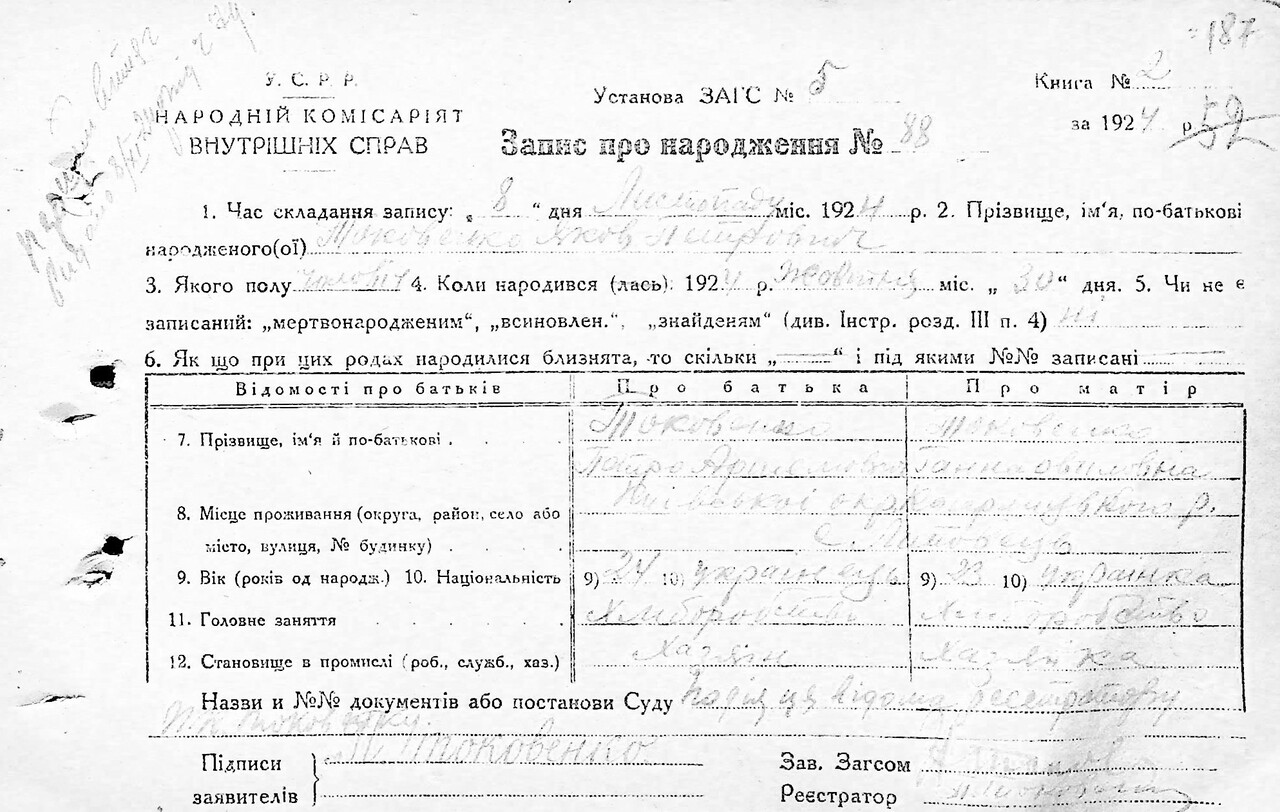 187
У. С. Р. Р.
НАРОДНІЙ КОМІСАРІЯТ
ВНУТРІШНІХ СПРАВ
Установа ЗАГС № 5
Книга № 2
за 1924 р 52
Запис про народження № 88
1. Час складання запису: „ 8 “ дня Листопаду міс. 1924 р. 2. Прізвище, ім‘я, по-батькові
народженого(ої) Токовенко Яков Петрович
3. Якого полу чоловіч 4. Коли народився (лась): 1924 р. Жовтня міс. „ 30 “ дня. 5. Чи не є
записаний: „мертвонародженим“, „всиновлен.“, „знайденям“ (див. Інстр. розд. III п. 4) ні
6. Як що при цих родах народилися близнята, то скільки „ “ і під якими №№ записані
Відомості про батьків Про батька Про матір
7. Прізвище, ім‘я й по-батькові Токовенко Токовенко
Петро Артемович Ганна
8. Місце проживання (округа, район, село або Київської окр р.
місто, вулиця, № будинку) с.
9. Вік (років од народж.) 10. Національність 9) 24 10) українець 9) 23 10) українка
11. Головне заняття Хліборобство Хліборобство
12. Становище в промислі (роб., служб., хаз.) Хазяін Хазяйка
Назви и №№ документів або постанови Суду Подія ця відома
Токовенку.
Підписи
заявителів } П Токовенко
Зав. Загсом
Реєстратор